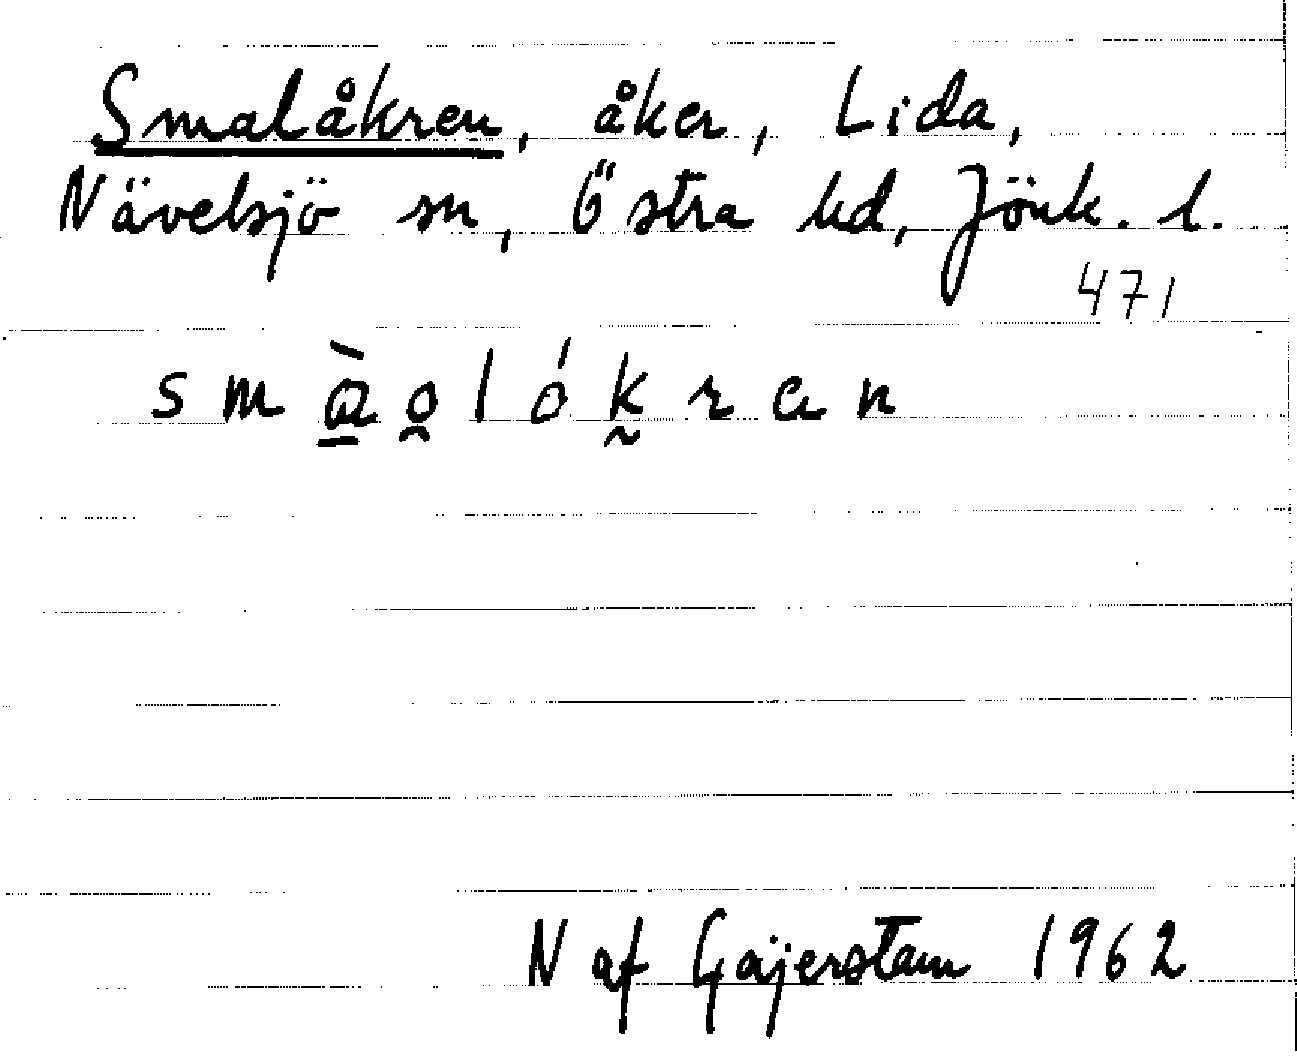 Smalåkren, åker, Lida,
Nävelsjö sn, Östra hd, Jönk. l.
471
s m à̠ o̯ l ó k̰ r a n
N af Gäjerstam 1962